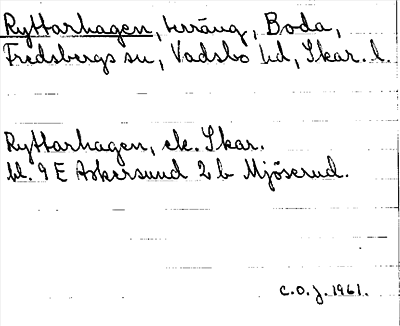 Ryttarhagen, terräng, Boda,
Fredsbergs sn, Vadsbo hd, Skar. l.
Ryttarhagen, ek. Skar.
bl. 9 E Askersund 2 b Mjöserud.
C.O.J. 1961.